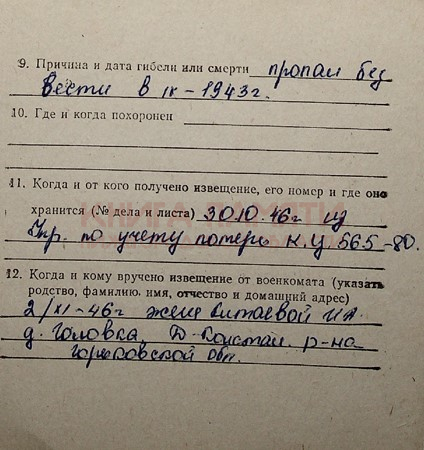 9. Причина и дата гибели или смерти пропал без
вести в IX-1943г.
10. Где и когда похоронен
11. Когда и от кого получено извещение, его номер и где оно
хранится (№ дела и листа) 30.10.46г из
КНИГА ПАМЯТИ
Упр. по учету потерь н.у. 565-80.
12. Когда и кому вручено извещение от военкомата (указать
родство, фамилию, имя, отчество и домашний адрес)
2/XI-46г жене
д. Головка, Д-Констан. р-на
Горьковской обл.